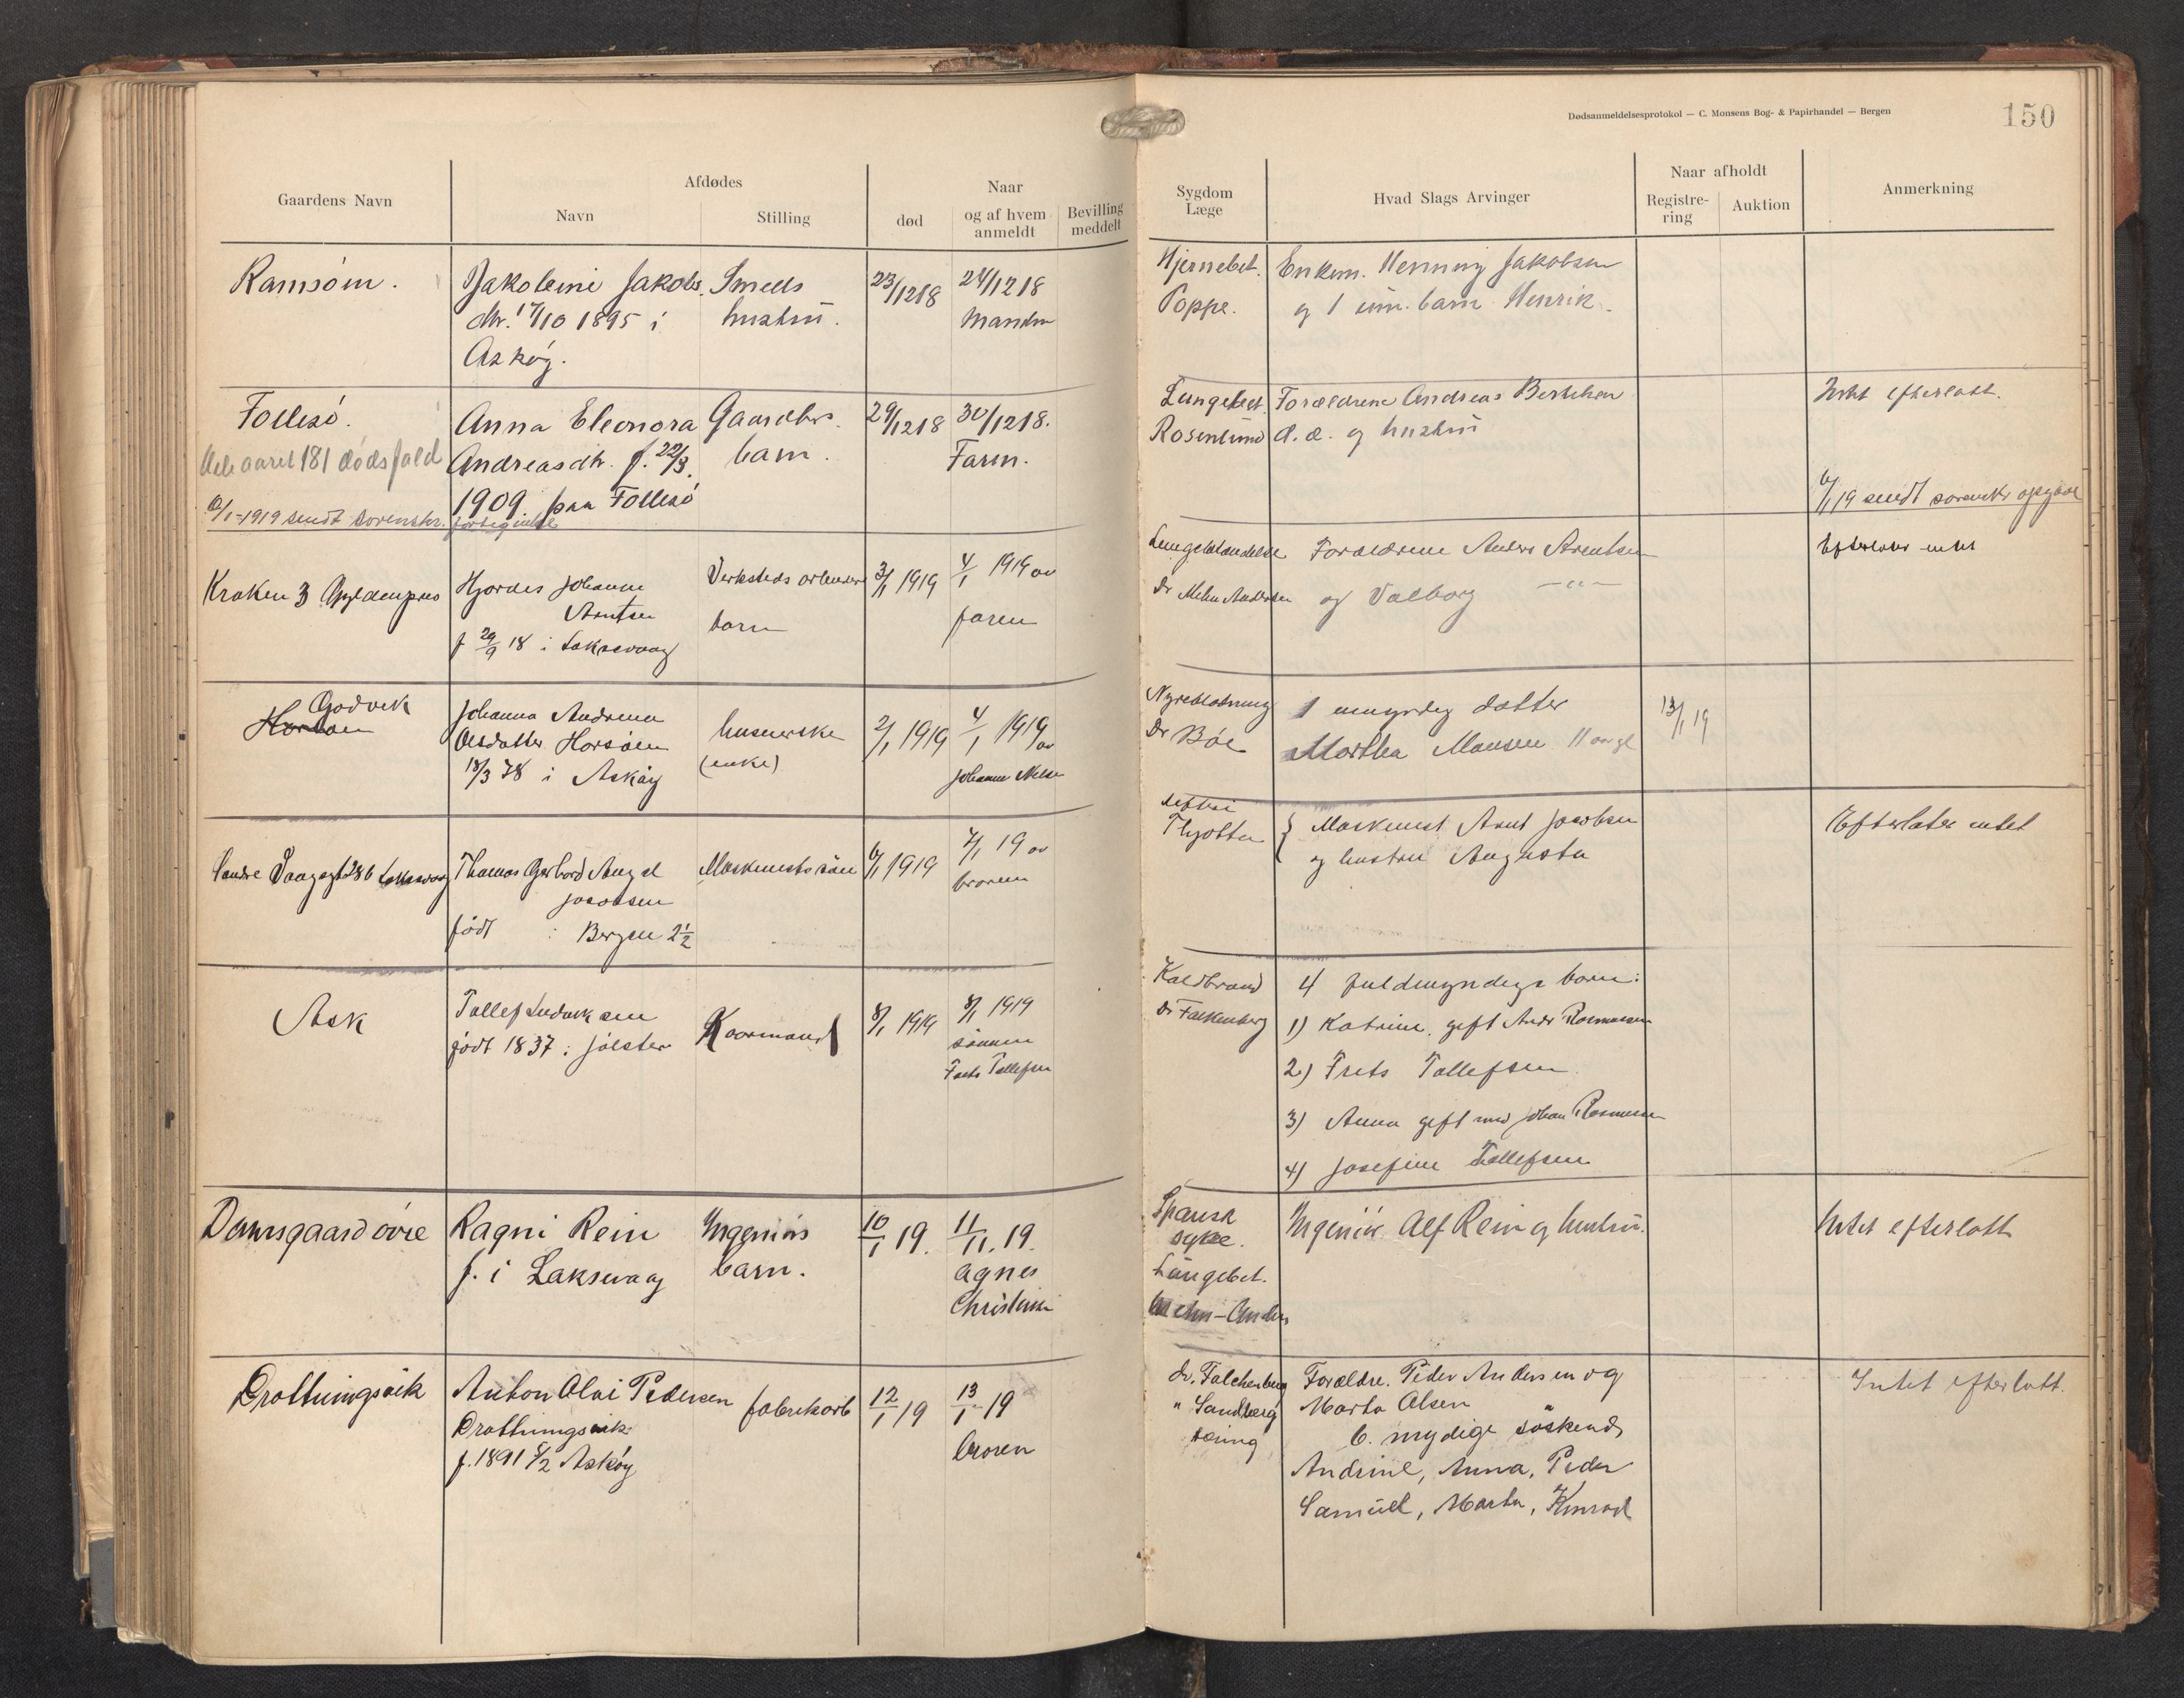 Dødsanmeldelsesprotokol — C. Monsens Bog- & Papirhandel — Bergen
150
Gaardens Navn
Afdødes
Navn
Stilling
død
Naar
og af hvem
anmeldt
Bevilling
meddelt
Sygdom
Læge
Hvad Slags Arvinger
Naar afholdt
Registre-
ring
Auktion
Anmerkning
Ramsöin.
Jakobine Jakobs.
dtr. 17/10 1895 i
Asköy.
Smeds
hustru.
23/12 18
24/12 18
Manden
Hjernebet.
Poppe.
Enkem. Henning Jakobsen
og 1 um. barn Henrik.
Follesö.
Hele aaret 181 dödsfald
Anna Eleonora
Andreasdtr. f. 22/3
1909. paa Follesö
Gaardbrs.
barn.
29/12 18
30/12 18.
Faren.
Lungebet.
Rosenlund
Forældrene Andreas Bertelsen
d. æ. og hustru
Intet efterlatt.
1919 sendt sorenskr. fortegnelse
1/1 19 sendt sorenskr opgave
Kroken 3 Gyldenpris
Hjordis Johanne
Arntsen
f 29/9 18 i Laksevaag
Verksteds arbeiders
barn
3/1 1919
4/1 1919 av
faren
Lungebetændelse
Dr Mehn Andersen
Forældrene Anders Arentsen
og Valborg —"—
Efterlater intet
Godvik
Johanna Andrea
Olsdatter Horsöen
18/3 78 i Asköy
husmorske
(enke)
2/1 1919
4/1 1919
av
Johanne Nilsen
Nyreblødning
Dr Böe
1 umyndig datter
Martha Monsen 11 aar gl
13/1 19
Söndre Vaagsgt 286 Laksevaag
Thomas Gerhard Angel
Jacobsen
födt i Bergen 2 1/2
Maskinists sön
6/1 1919
7/1 19 av
broren
Thjötta
Maskinist Arnt Jacobsen
og hustru Augusta
Efterlater intet
Ask
Tollef Ludviksen
födt 1837 i Jölster
Kaarmand
8/1 1919
8/1 1919
sönnen
Frets Tollefsen
Koldbrand
Dr Falkenberg
4 fuldmyndige barn:
1) Katrine, gift Andr Rasmussen
2) Frets Tollefsen
3) Anna gift med Johan Rasmussen
4) Josefine Tollefsen
Damsgaard övre
Ragni Rein
f. i Laksevaag
Ingeniörs
barn.
10/1 19.
11/11. 19.
Agnes
Christensen
Spansk
syke.
Lungebet.
Mehn-Anders
Ingeniör Alf Rein og hustru.
Intet efterlatt
Drottningsvik
Anton Olai Pedersen
Drottningsvik
f. 1891 8/2 Asköy
fabrikarb
12/1 19
13/1 19
broren
dr. Falchenberg
" Sandberg
tæring
Forældre. Peder Andersen og
Marta Olsen
6. myndige söskend,
Andrine, Anna, Peder
Samuel, Marta, Konrad
Intet efterlatt.